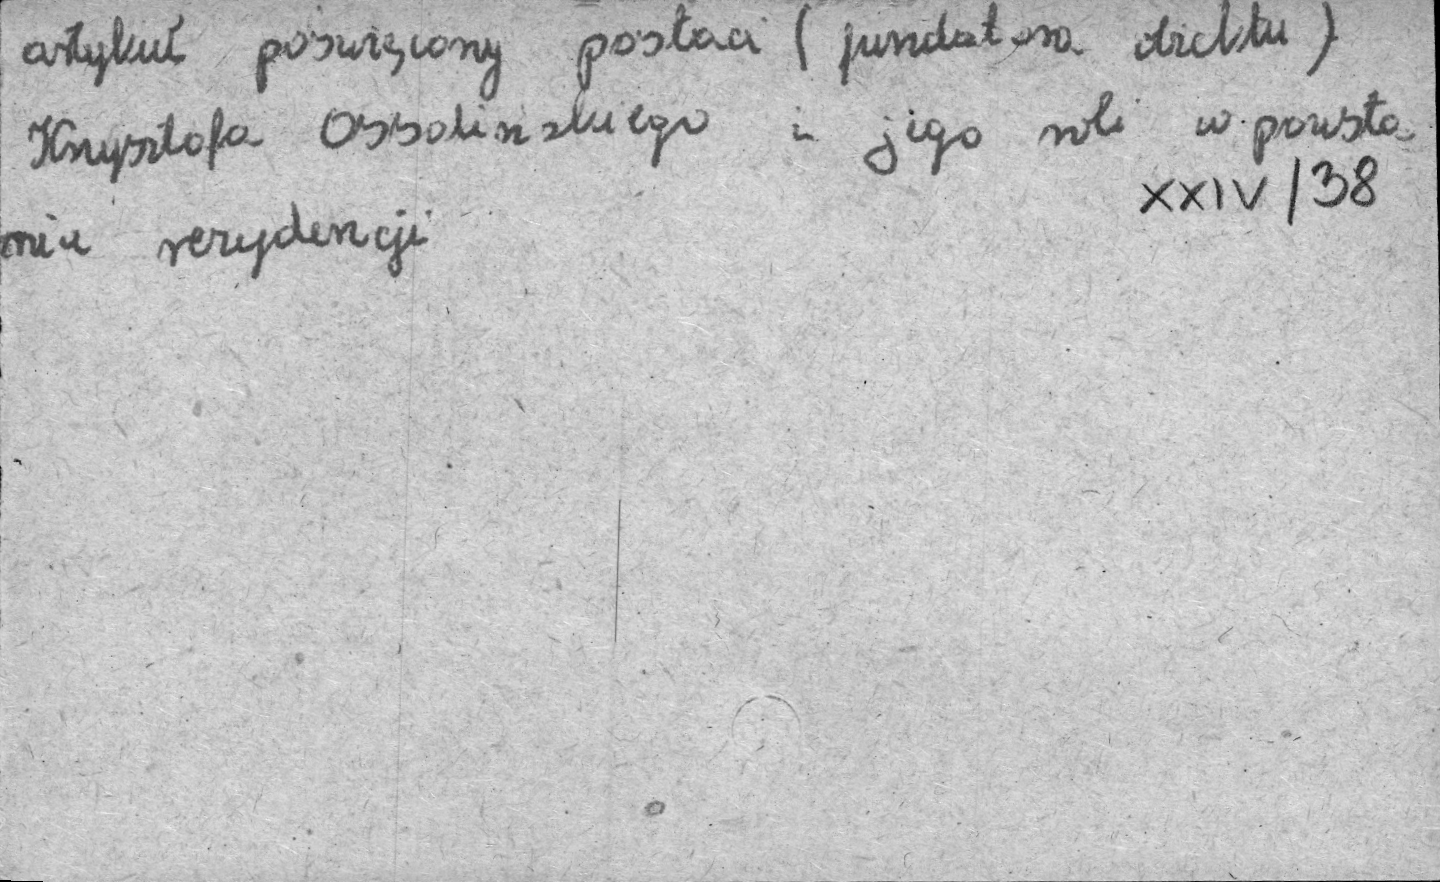 artykuł poświęcony postaci (fundatora obiektu)
Krzysztofa Ossolińskiego i jego roli w powsta-
niu rezydencji
XXIV/38